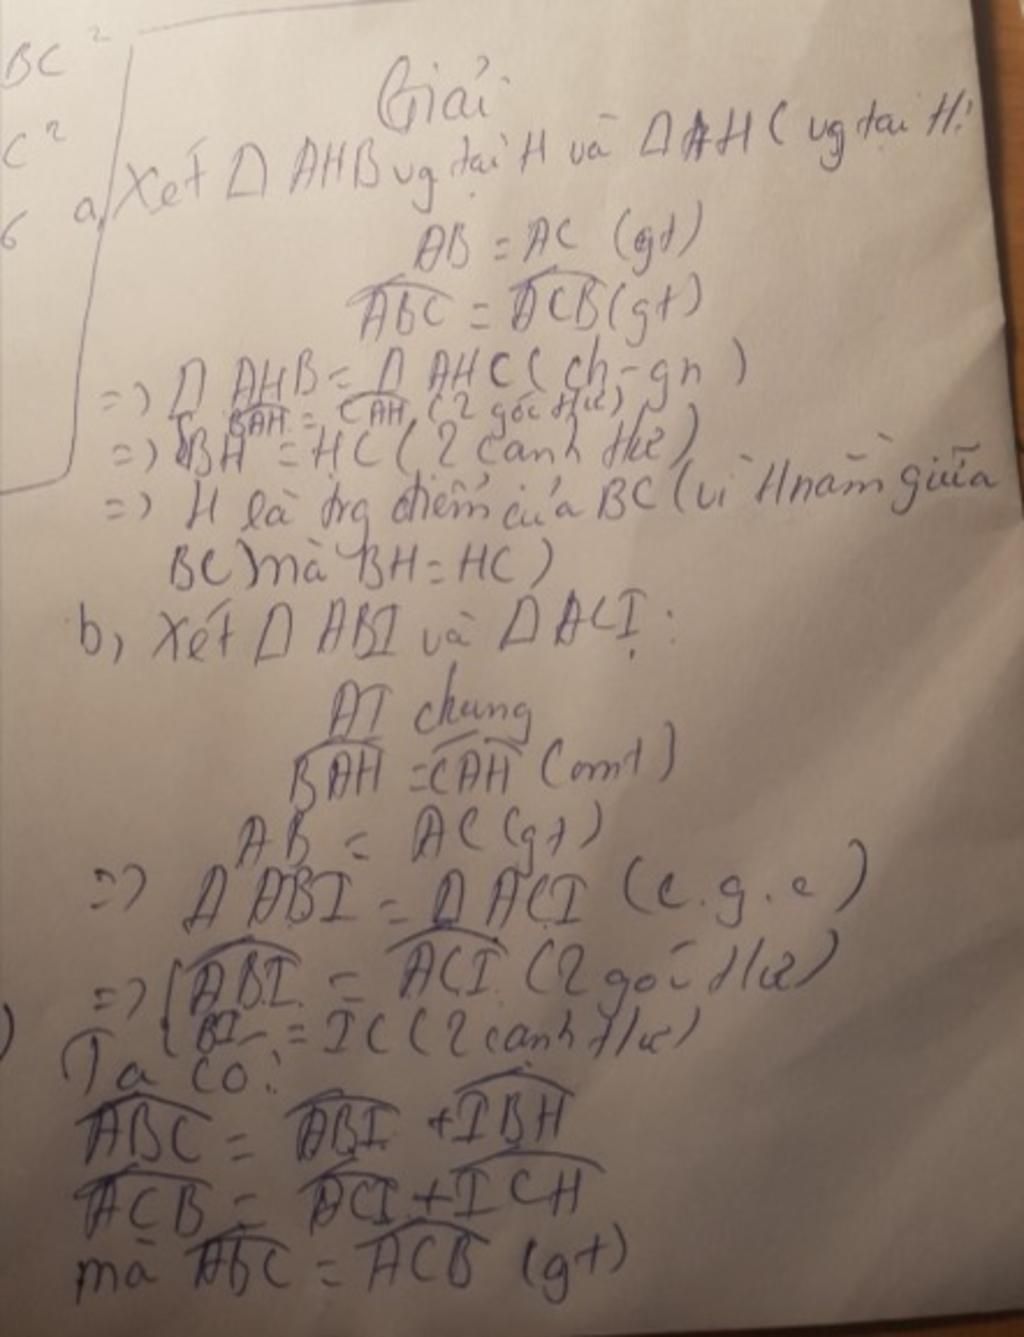 BC²
C²
6
Giải
a, Xét Δ AHB vg tại H và Δ AHC vg tại H:
AB = AC (gt)
ABC = ACB (gt)
=> Δ AHB = Δ AHC (ch-gn)
BAH = CAH (2 góc tư)
=> BH = HC (2 cạnh tư)
=> H là trg điểm của BC (vì H nằm giữa
BC mà BH = HC)
b, Xét Δ ABI và Δ ACI:
AI chung
BAH = CAH (cmt)
AB = AC (gt)
=> Δ ABI = Δ ACI (c.g.c)
=> ABI = ACI (2 góc tư)
BI = IC (2 cạnh tư)
Ta có:
ABC = ABI + IBH
ACB = ACI + ICH
mà ABC = ACB (gt)